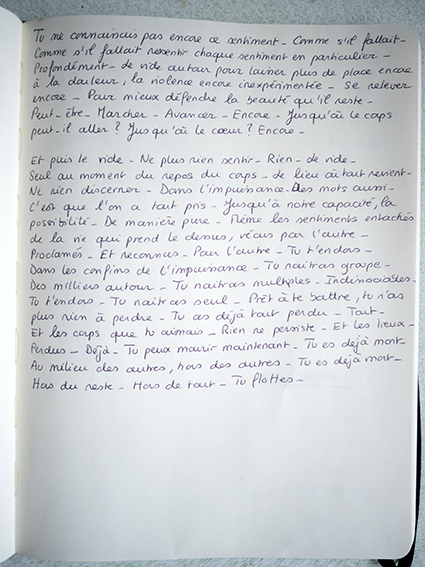 Tu ne connaissais pas encore ce sentiment_ Comme s'il fallait_
Comme s'il fallait ressentir chaque sentiment en particulier_
Profondément_ de vide autour pour laisser plus de place encore
à la douleur, la violence encore inexpérimentée_ Se relever
encore_ Pour mieux défendre la beauté qu'il reste_
Peut-être_ Marcher_ Avancer_ Encore_ Jusqu'où le corps
peut-il aller? Jusqu'où le cœur? Encore_
Et puis le vide_ Ne plus rien sentir_ Rien_ de vide_
Seul au moment du repos du corps_ de lieu où tout revient_
Ne rien discerner_ Dans l'impuissance_ Des mots aussi_
C'est que l'on a tout pris_ Jusqu'à notre capacité, la
possibilité_ De manière pure_ Même les sentiments entachés
de la vie qui prend le dessus, vécus par l'autre_
Proclamés_ Et reconnus_ Pour l'autre_ Tu t'endors_
Dans les confins de l'impuissance_ Tu naîtras groupe_
Des milliers autour_ Tu naîtras multiples_ Indissociables_
Tu t'endors_ Tu naîtras seul_ Prêt à te battre, tu n'as
plus rien à perdre_ Tu as déjà tout perdu_ Tout_
Et les corps que tu aimais_ Rien ne persiste_ Et les lieux_
Perdus_ Déjà_ Tu peux mourir maintenant_ Tu es déjà mort_
Au milieu des autres, hors des autres_ Tu es déjà mort_
Hors du reste_ Hors de tout_ Tu flottes_